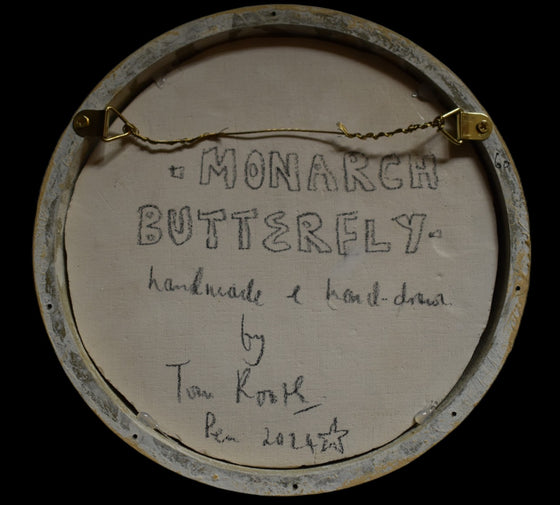 · MONARCH
BUTTERFLY ·
handmade & hand-drawn
by
Tom Rooth
Pen 2024